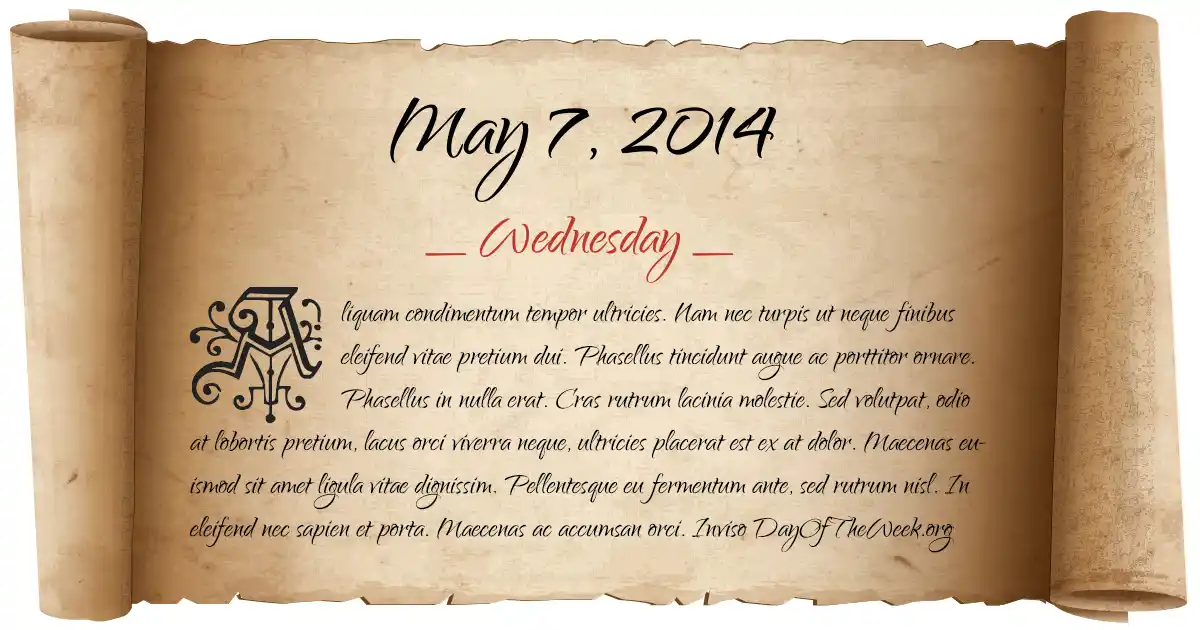 May 7, 2014
Wednesday
Aliquam condimentum tempor ultricies. Nam nec turpis ut neque finibus
eleifend vitae pretium dui. Phasellus tincidunt augue ac porttitor ornare.
Phasellus in nulla erat. Cras rutrum lacinia molestie. Sed volutpat, odio
at lobortis pretium, lacus orci viverra neque, ultricies placerat est ex at dolor. Maecenas eu-
ismod sit amet ligula vitae dignissim. Pellentesque eu fermentum ante, sed rutrum nisl. In
eleifend nec sapien et porta. Maecenas ac accumsan orci. Inviso DayOfTheWeek.org